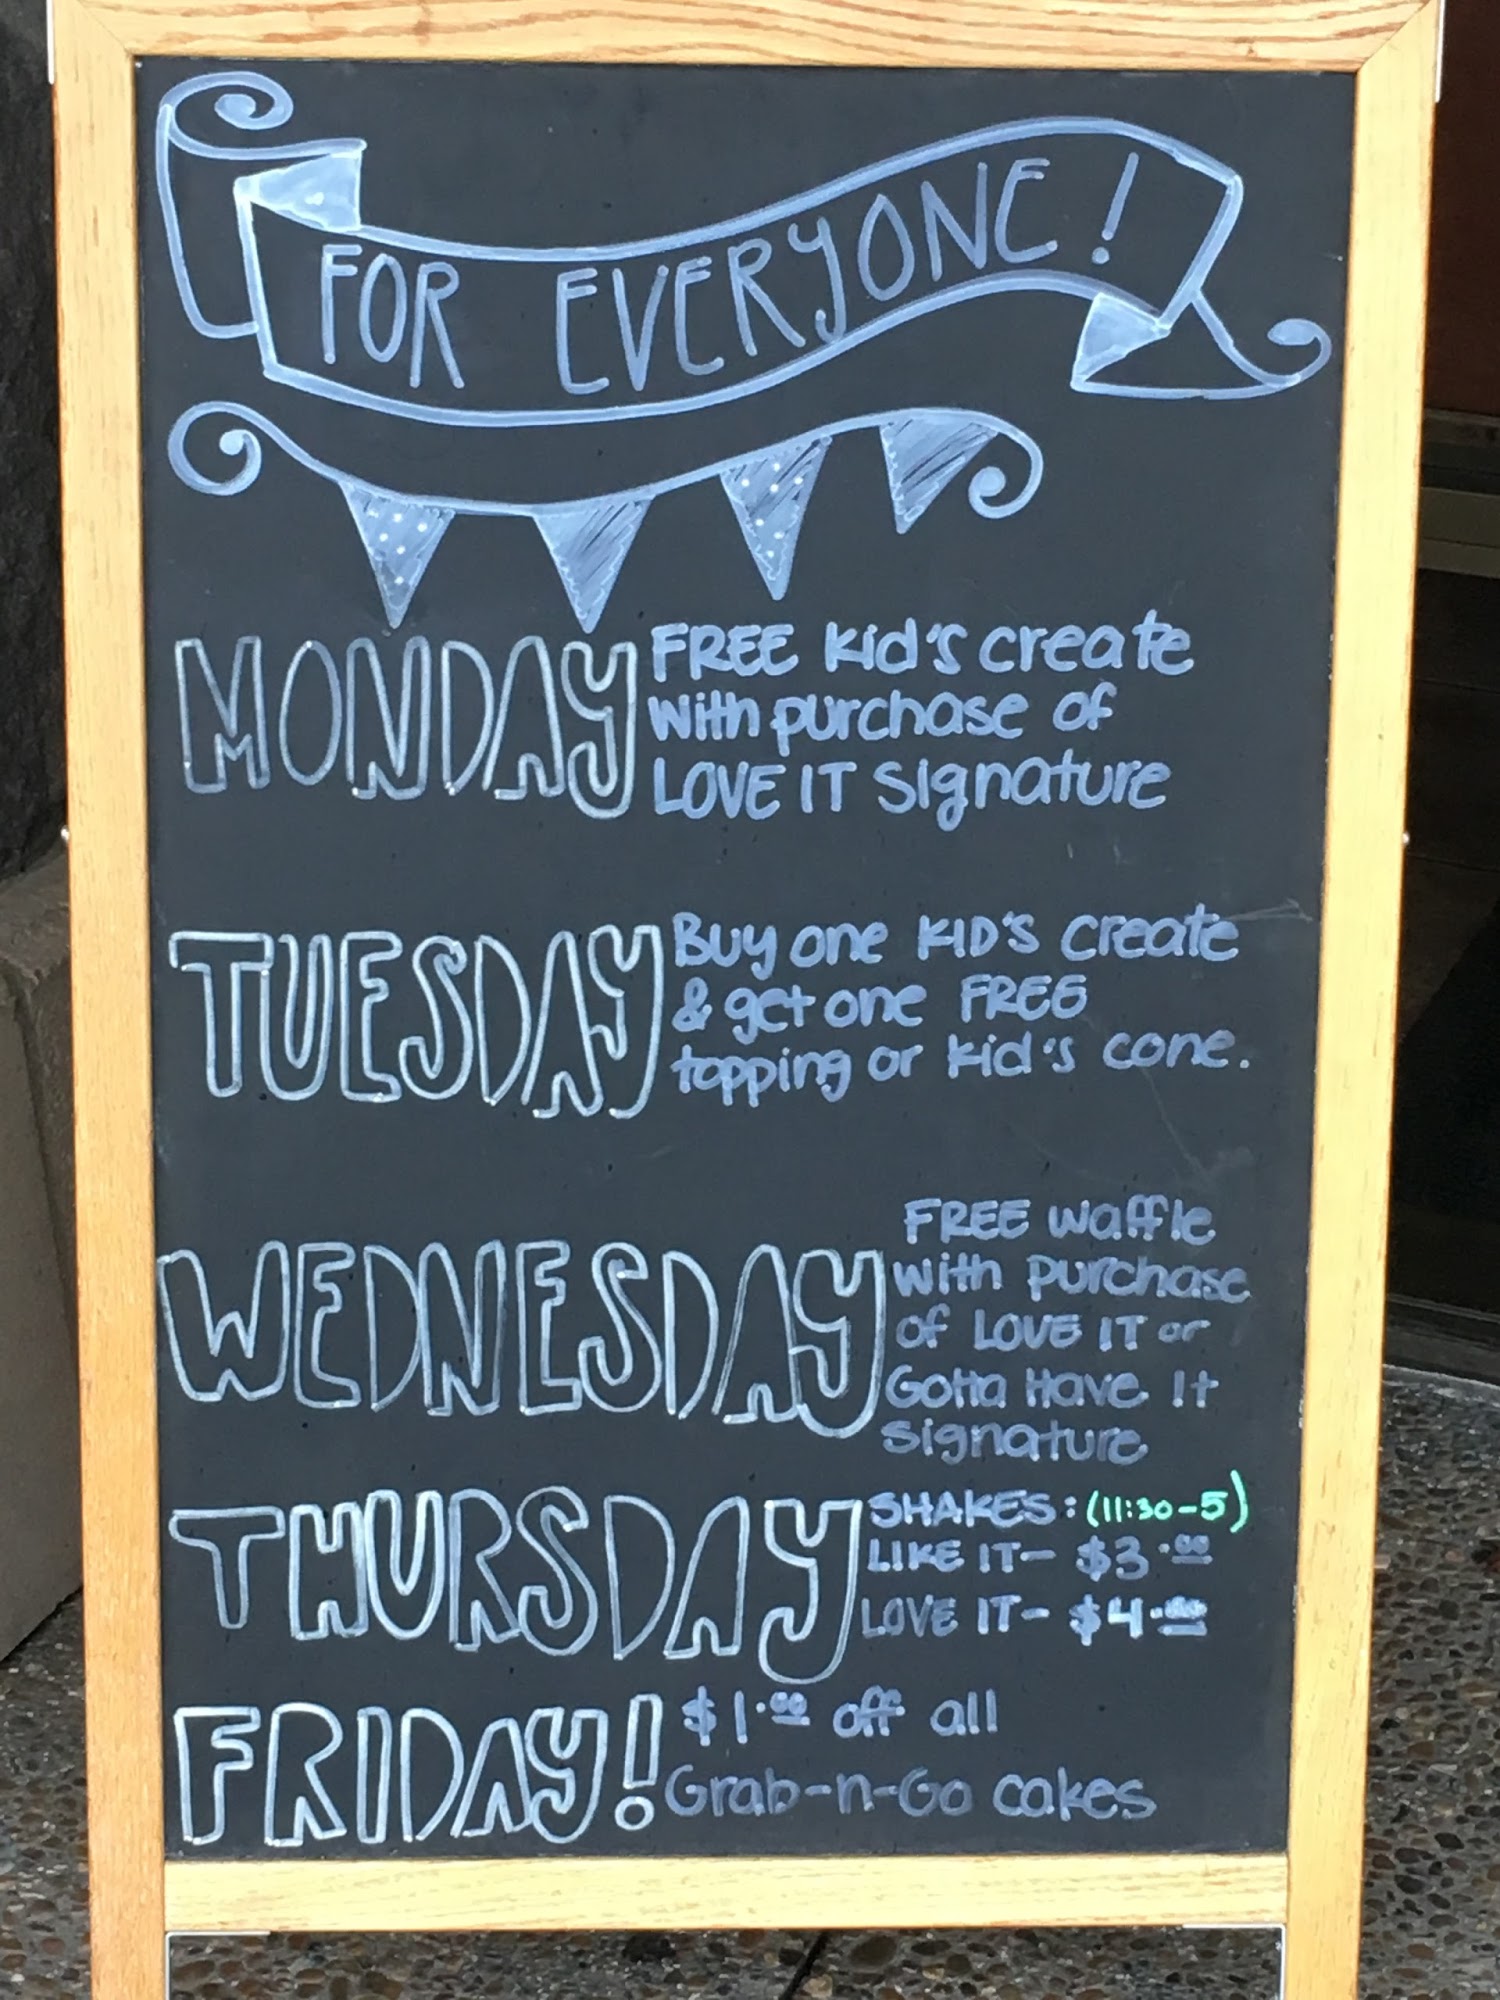 FOR EVERYONE!
MONDAY
FREE kid's create
with purchase of
LOVE IT signature
TUESDAY
Buy one KID'S create
& get one FREE
topping or kid's cone.
WEDNESDAY
FREE waffle
with purchase
of LOVE IT or
Gotta Have It
signature
THURSDAY
SHAKES: (11:30-5)
LIKE IT- $3.00
LOVE IT- $4.00
FRIDAY!
$1.00 off all
Grab-n-Go cakes